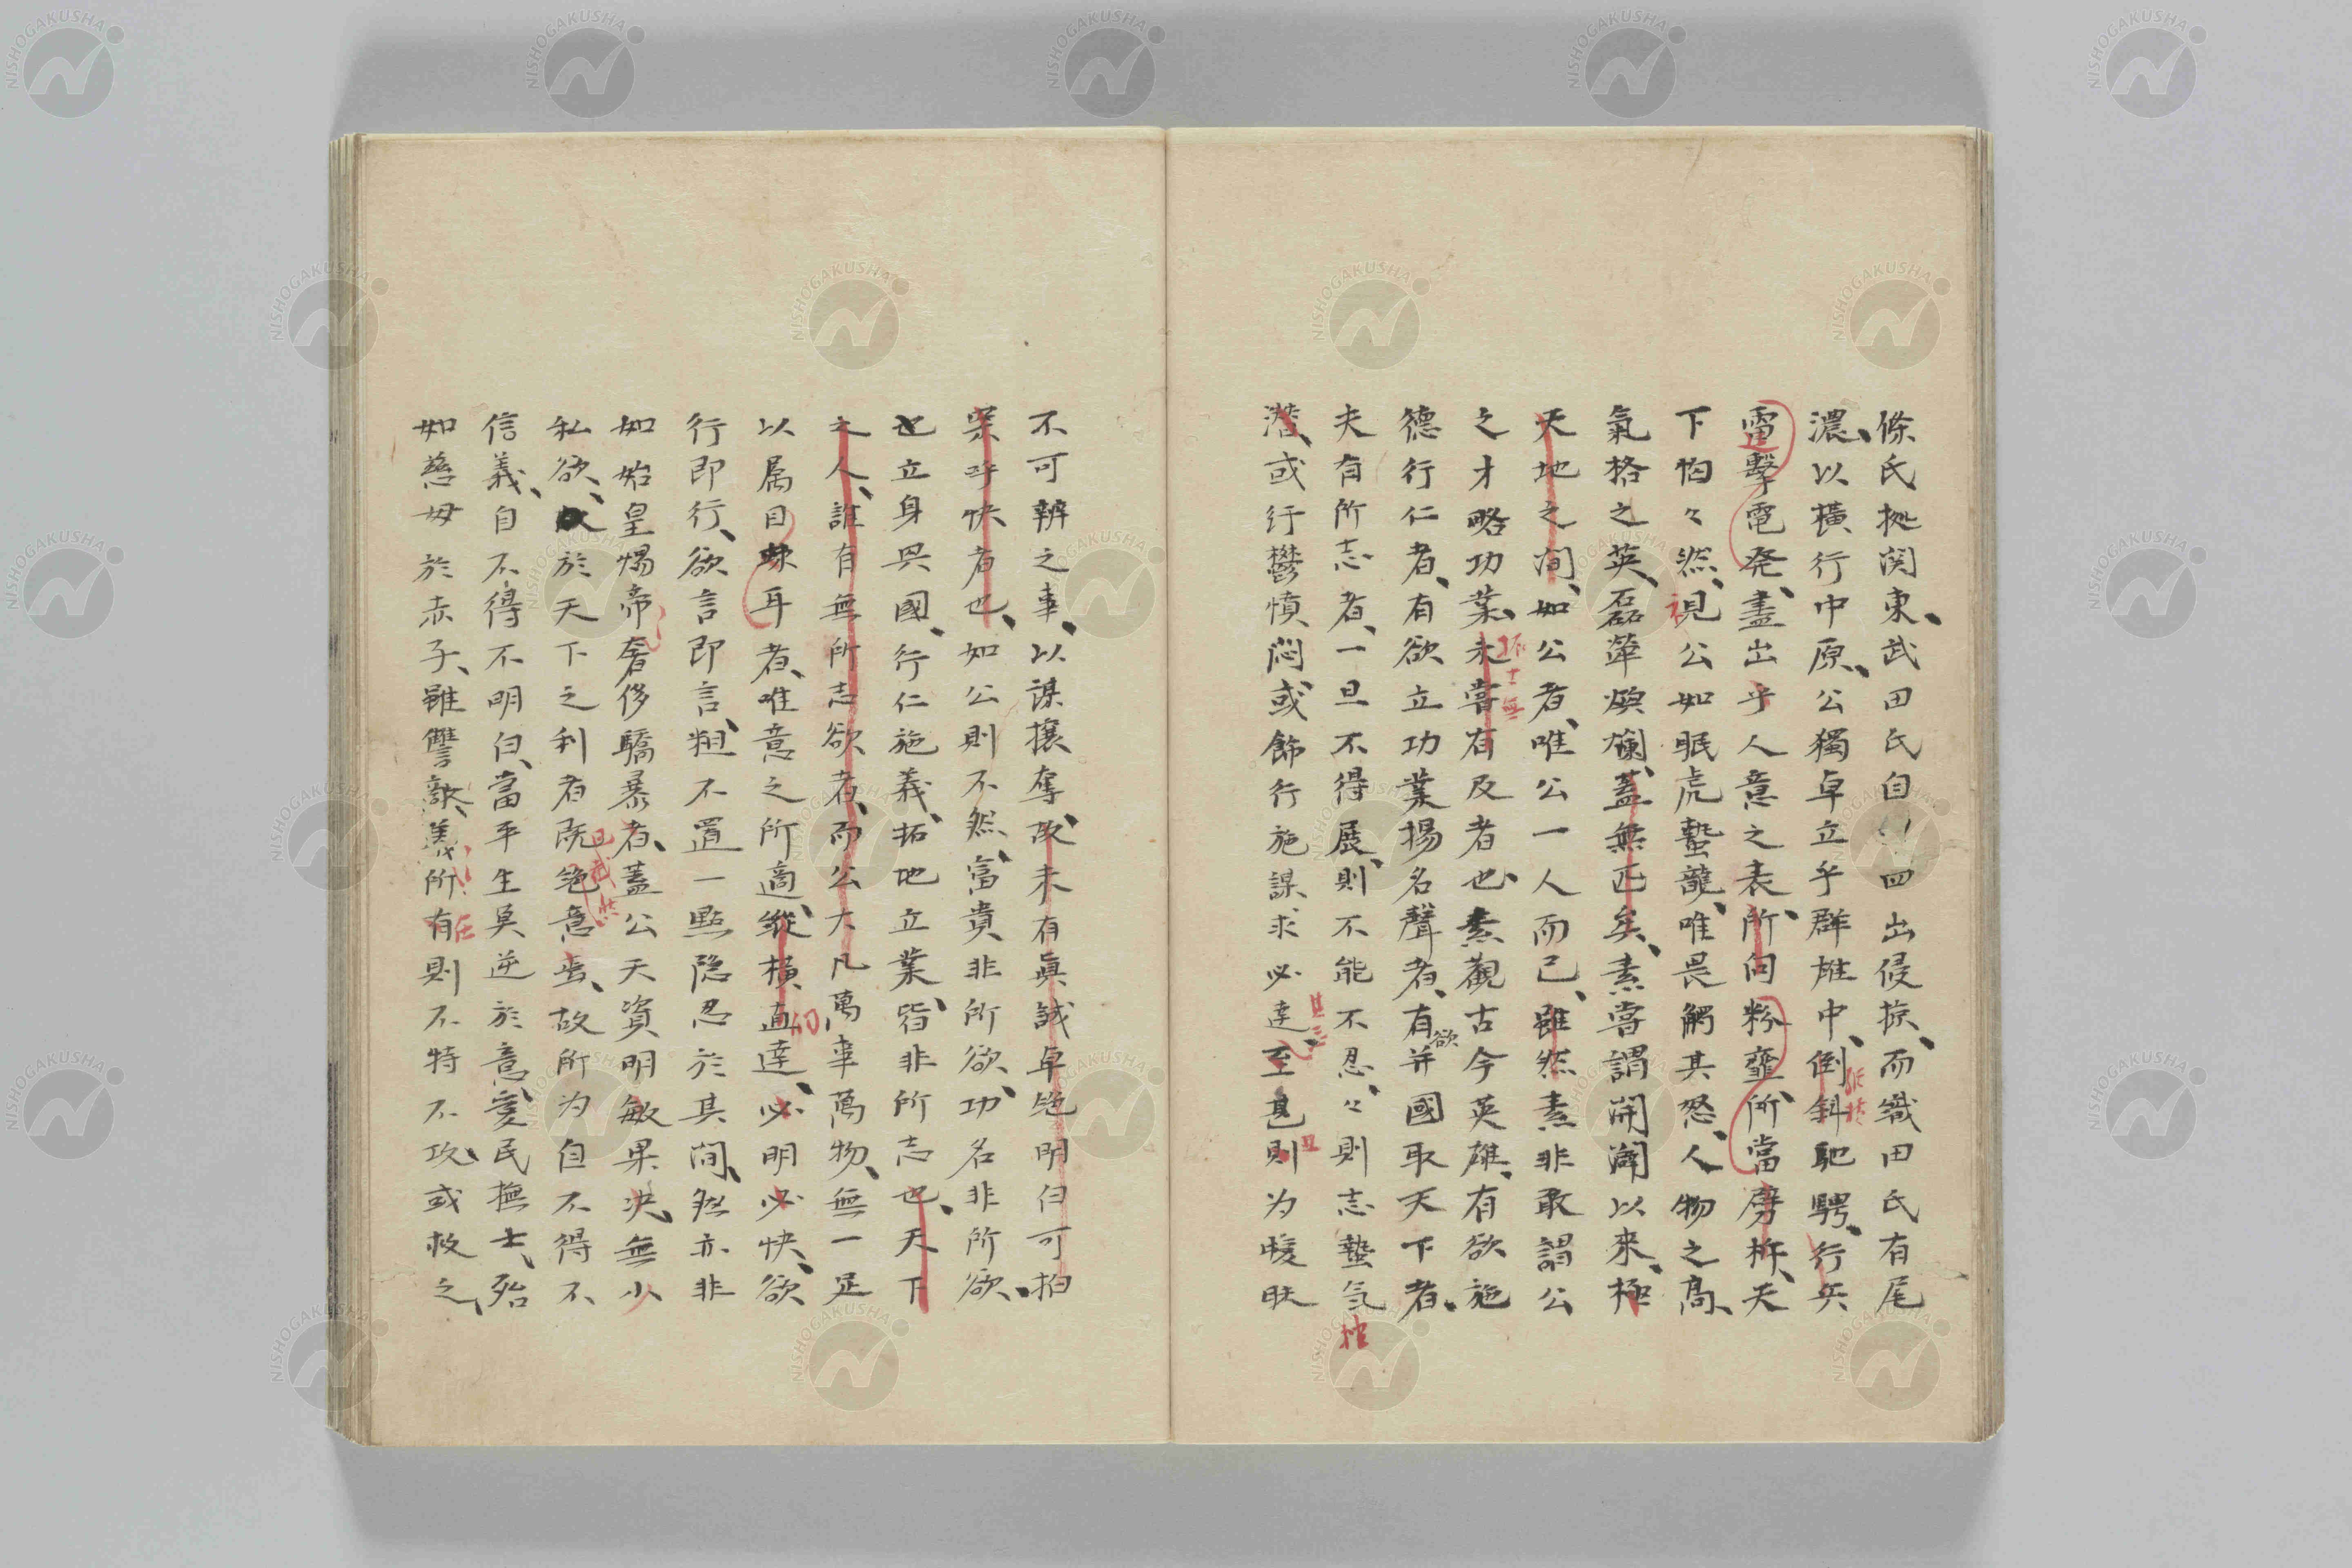 條氏拠関東、武田氏自 四出侵掠、而織田氏有尾
濃、以横行中原、公獨卓立乎群雄中、倒斜馳騁、行兵
雷擊電発、盡出乎人意之表、所向粉韲、所當劈柝、天
下怕々然、見公如眠虎蟄龍、唯畏觸其怒、人物之高、
氣格之英、磊犖煥爛、蓋無匹矣、素嘗謂開闢以來、極
天地之间、如公者、唯公一人而已、雖然素非敢謂公
之才略功業、未嘗有及者也、素觀古今英雄、有欲施
德行仁者、有欲立功業揚名聲者、有欲并國取天下者、
夫有所志者、一旦不得展、則不能不忍、々則志蟄気
潜、或行鬱憤悶、或飾行施謀、求必達、至甚則为曖昧
不可辨之事、以謀攘奪、故未有眞誠卓绝明白可拍
案呼快者也、如公則不然、富貴非所欲、功名非所欲、
也立身興國、行仁施義、拓地立業、皆非所志也、天下
之人、誰有無所志欲者、而公大凡萬事萬物、無一足
以属目 耳者、唯意之所適、縦横直達、必明必快、欲
行即行、欲言即言、粗不置一點隐忍於其间、然亦非
如始皇煬帝奢侈驕暴者、蓋公天資明敏果决、無少
私欲、於天下之利者既绝意焉、故所为自不得不
信義、自不得不明白、當平生莫逆於意、愛民撫士、殆
如慈母於赤子、雖讐敵、義所有則不特不攻、或救之、
NISHOGAKUSHA